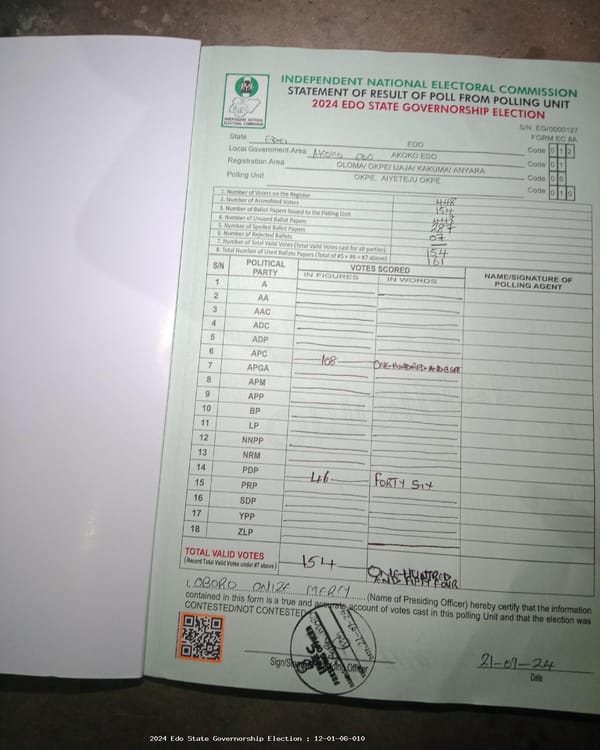 INDEPENDENT NATIONAL ELECTORAL COMMISSION
STATEMENT OF RESULT OF POLL FROM POLLING UNIT
2024 EDO STATE GOVERNORSHIP ELECTION
INDEPENDENT NATIONAL ELECTORAL COMMISSION
S/N: EG/0000127
FORM EC 8A
State EDO EDO Code 0 1 2
Local Government Area AKOKO EDO AKOKO EDO Code 0 1
Registration Area OLOMA/ OKPE/ IJAJA/ KAKUMA/ ANYARA Code 0 6
Polling Unit OKPE, AIYETEJU OKPE Code 0 1 0
1. Number of Voters on the Register 448
2. Number of Accredited Voters 154
3. Number of Ballot Papers Issued to the Polling Unit 448
4. Number of Unused Ballot Papers 287
5. Number of Spoiled Ballot Papers 07
6. Number of Rejected Ballots
7. Number of Total Valid Votes (Total Valid Votes cast for all parties) 154
8. Total Number of Used Ballots Papers (Total of #5 + #6 + #7 above) 161
S/N POLITICAL PARTY VOTES SCORED NAME/SIGNATURE OF POLLING AGENT
IN FIGURES IN WORDS
1 A
2 AA
3 AAC
4 ADC
5 ADP
6 APC 108 ONE HUNDRED AND EIGHT
7 APGA
8 APM
9 APP
10 BP
11 LP
12 NNPP
13 NRM
14 PDP 46 FORTY SIX
15 PRP
16 SDP
17 YPP
18 ZLP
TOTAL VALID VOTES 154 ONE HUNDRED AND FIFTY FOUR
(Record Total Valid Votes under #7 above)
I, OBORO ONIZE MERCY (Name of Presiding Officer) hereby certify that the information
contained in this form is a true and accurate account of votes cast in this polling Unit and that the election was
CONTESTED/NOT CONTESTED
Officer 21-09-24
Date
2024 Edo State Governorship Election : 12-01-06-010